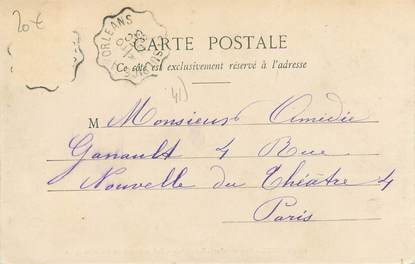 20 €
ORLEANS
CARTE POSTALE
Ce côté est exclusivement réservé à l'adresse
41
M Monsieur Amédie
Ganault 4 Rue
Nouvelle du Théâtre 4
Paris